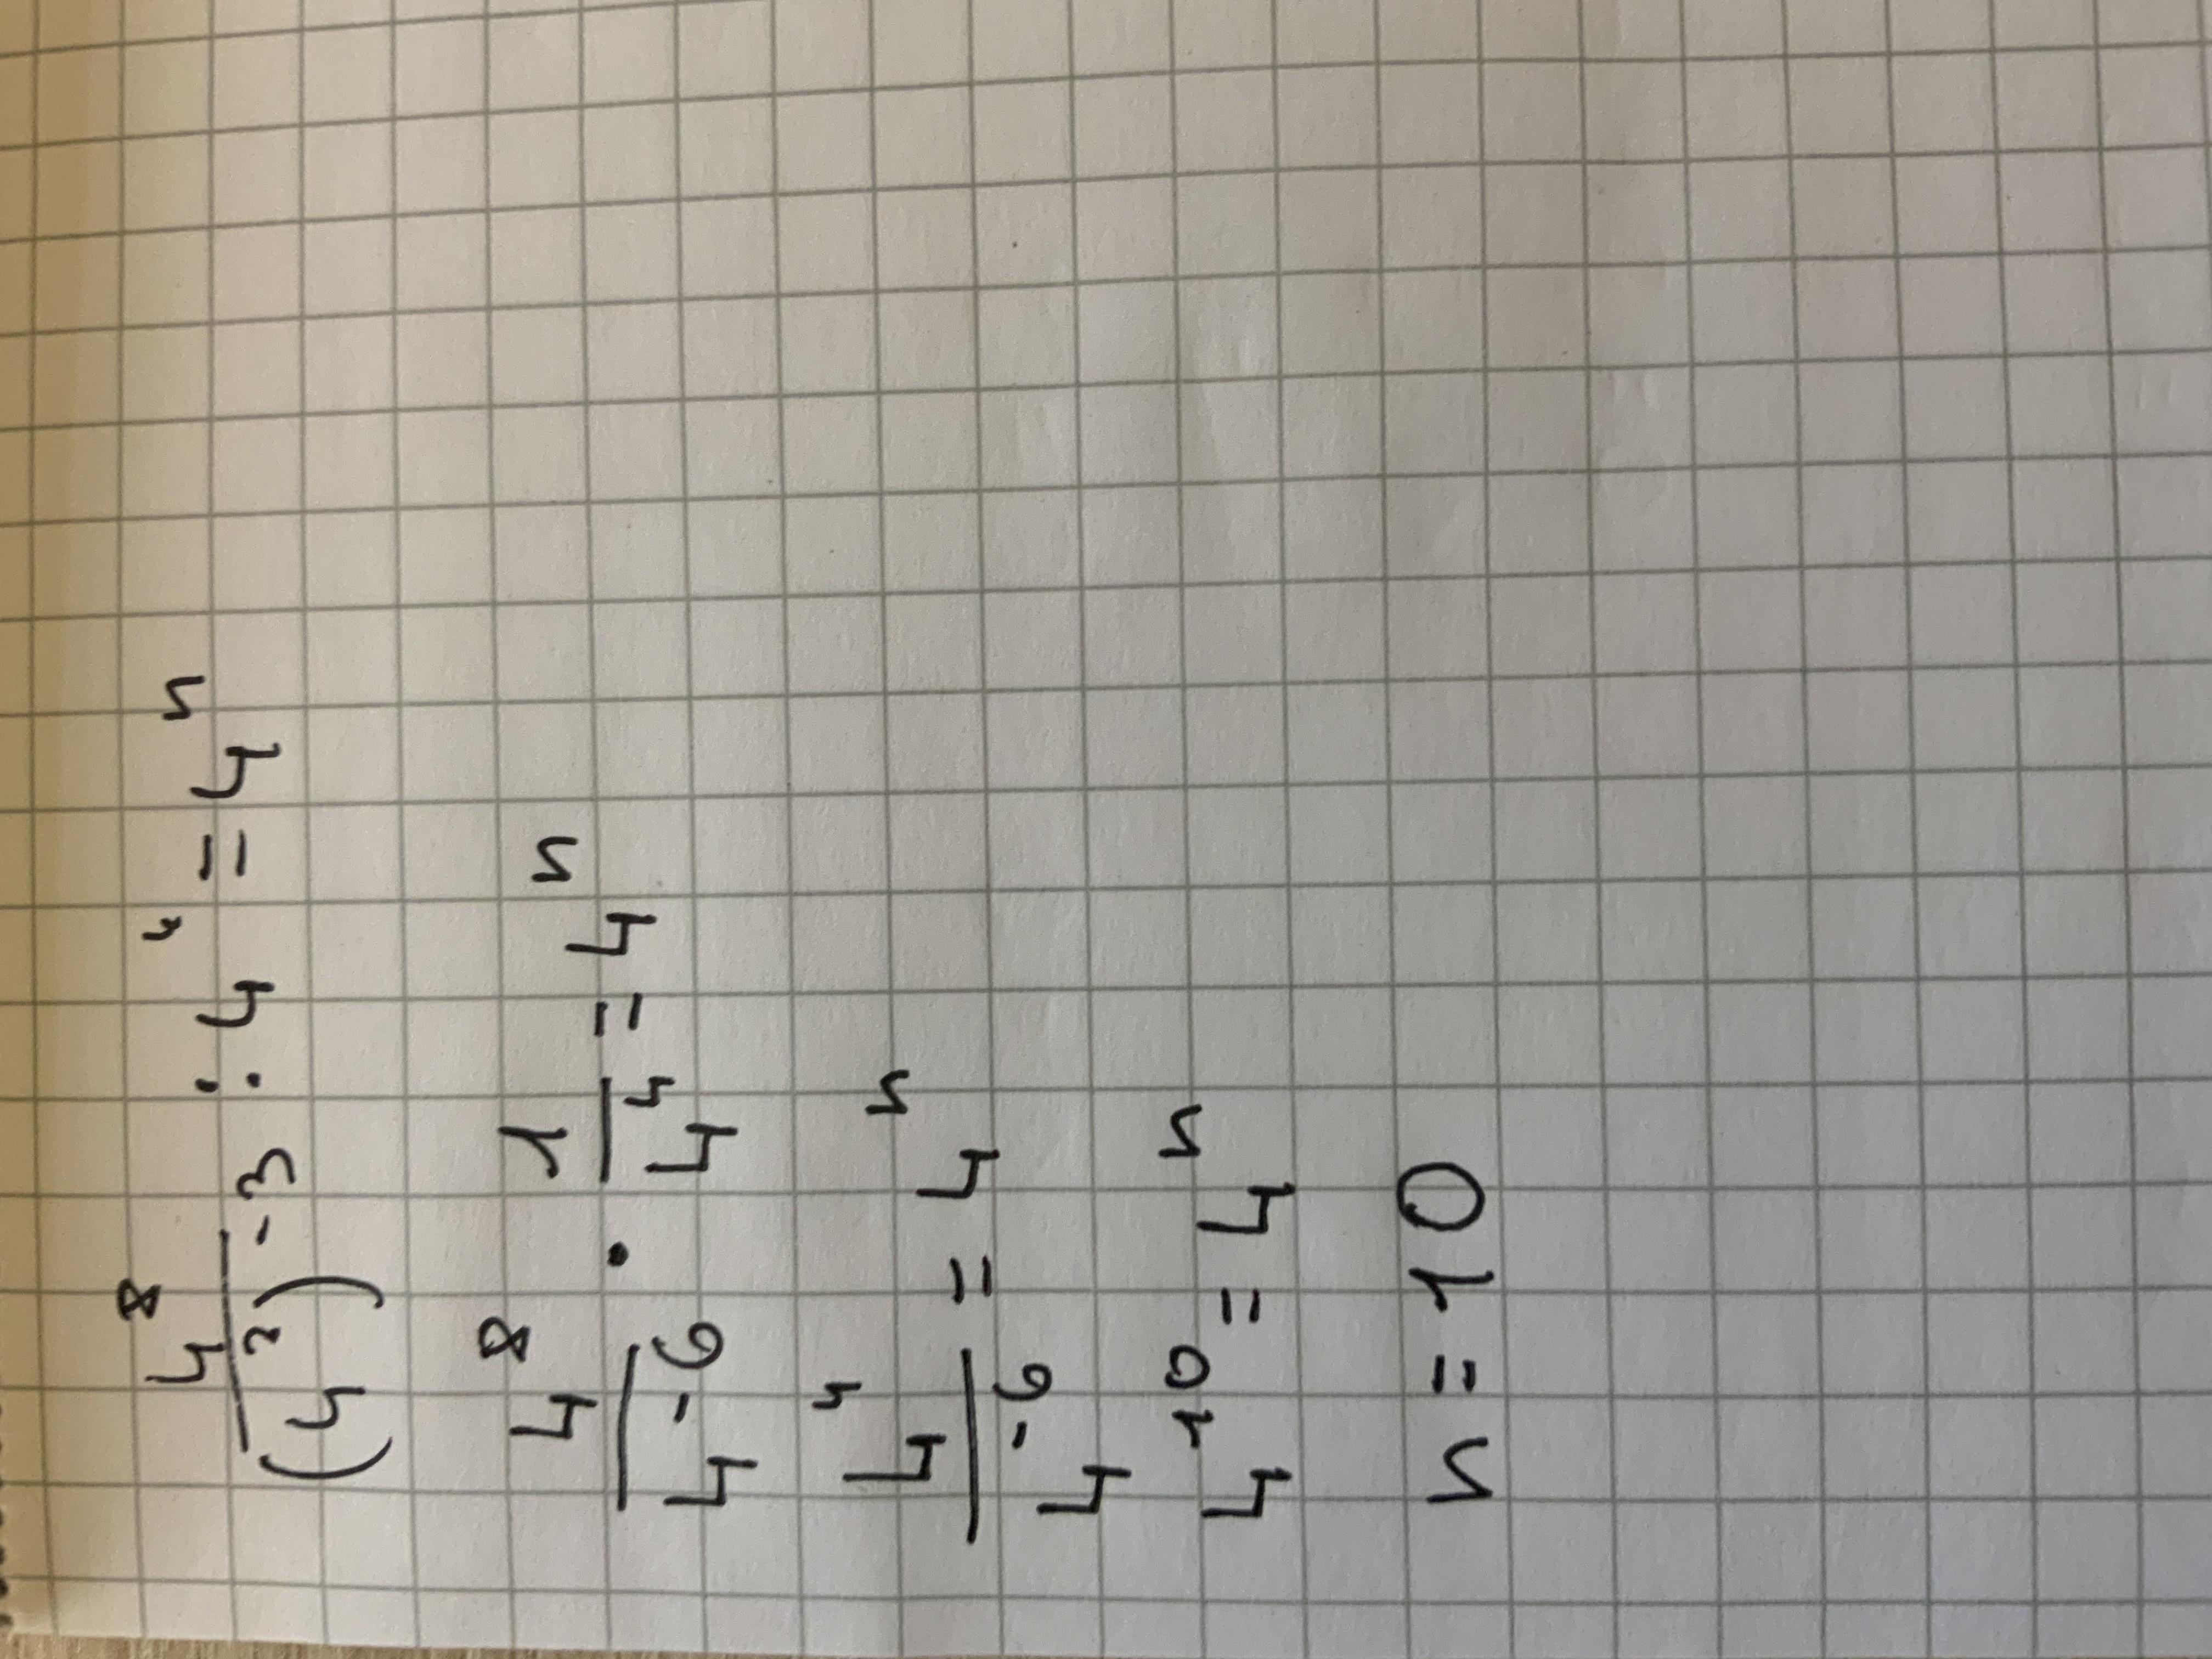 4⁸/(4²)⁻³ : 4⁴ = 4ⁿ
4⁸/4⁻⁶ · 1/4⁴ = 4ⁿ
4⁴/4⁻⁶ = 4ⁿ
4¹⁰ = 4ⁿ
n = 10